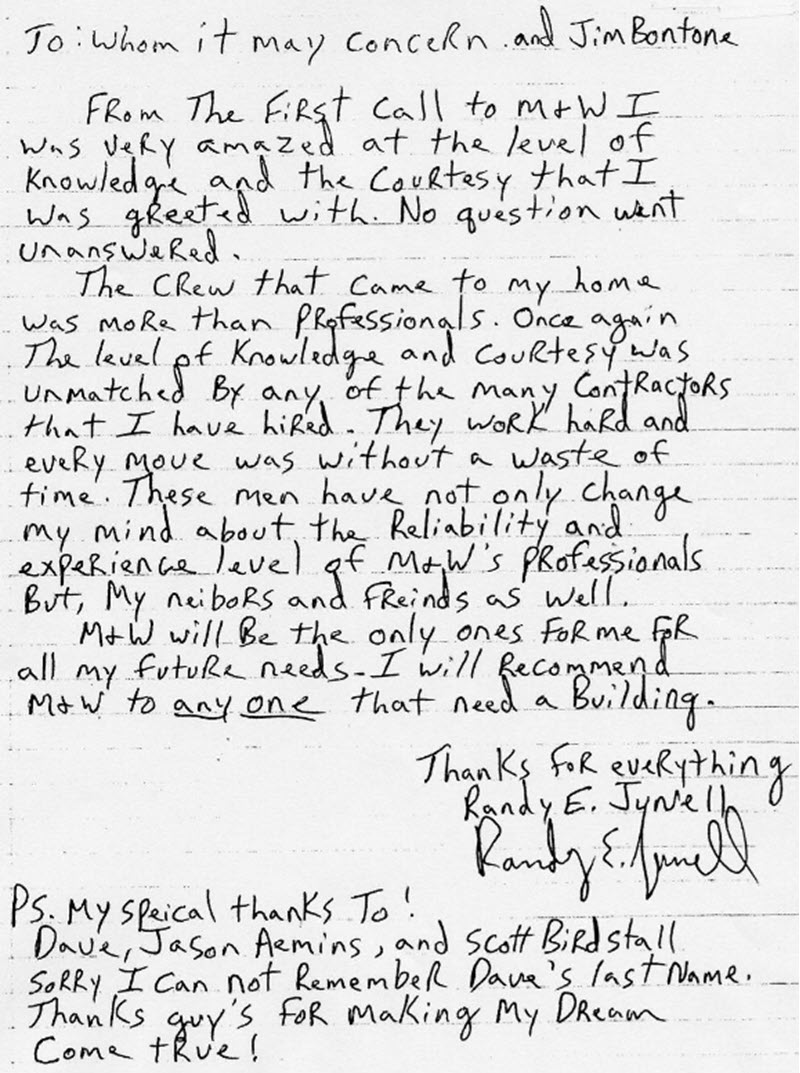 To: Whom it may concern and Jim Bontone
From The First Call to M+W I
was very amazed at the level of
Knowledge and the Courtesy that I
was greeted with. No question went
unanswered.
The Crew that came to my home
was more than Professionals. Once again
The level of Knowledge and Courtesy was
unmatched By any of the many Contractors
that I have hired. They work hard and
every move was without a waste of
time. These men have not only change
my mind about the Reliability and
experience level of M+W's professionals
But, My neibors and Freinds as well.
M+W will Be the only ones For me For
all my future needs. I will Recommend
M+W to any one that need a Building.
Thanks For everything
Randy E. Jynell
Randy E. Jynell
Ps. My speical thanks To!
Dave, Jason Aemins, and Scott Birdstall
Sorry I Can not Remember Dave's last Name.
Thanks guy's For Making My Dream
Come true!